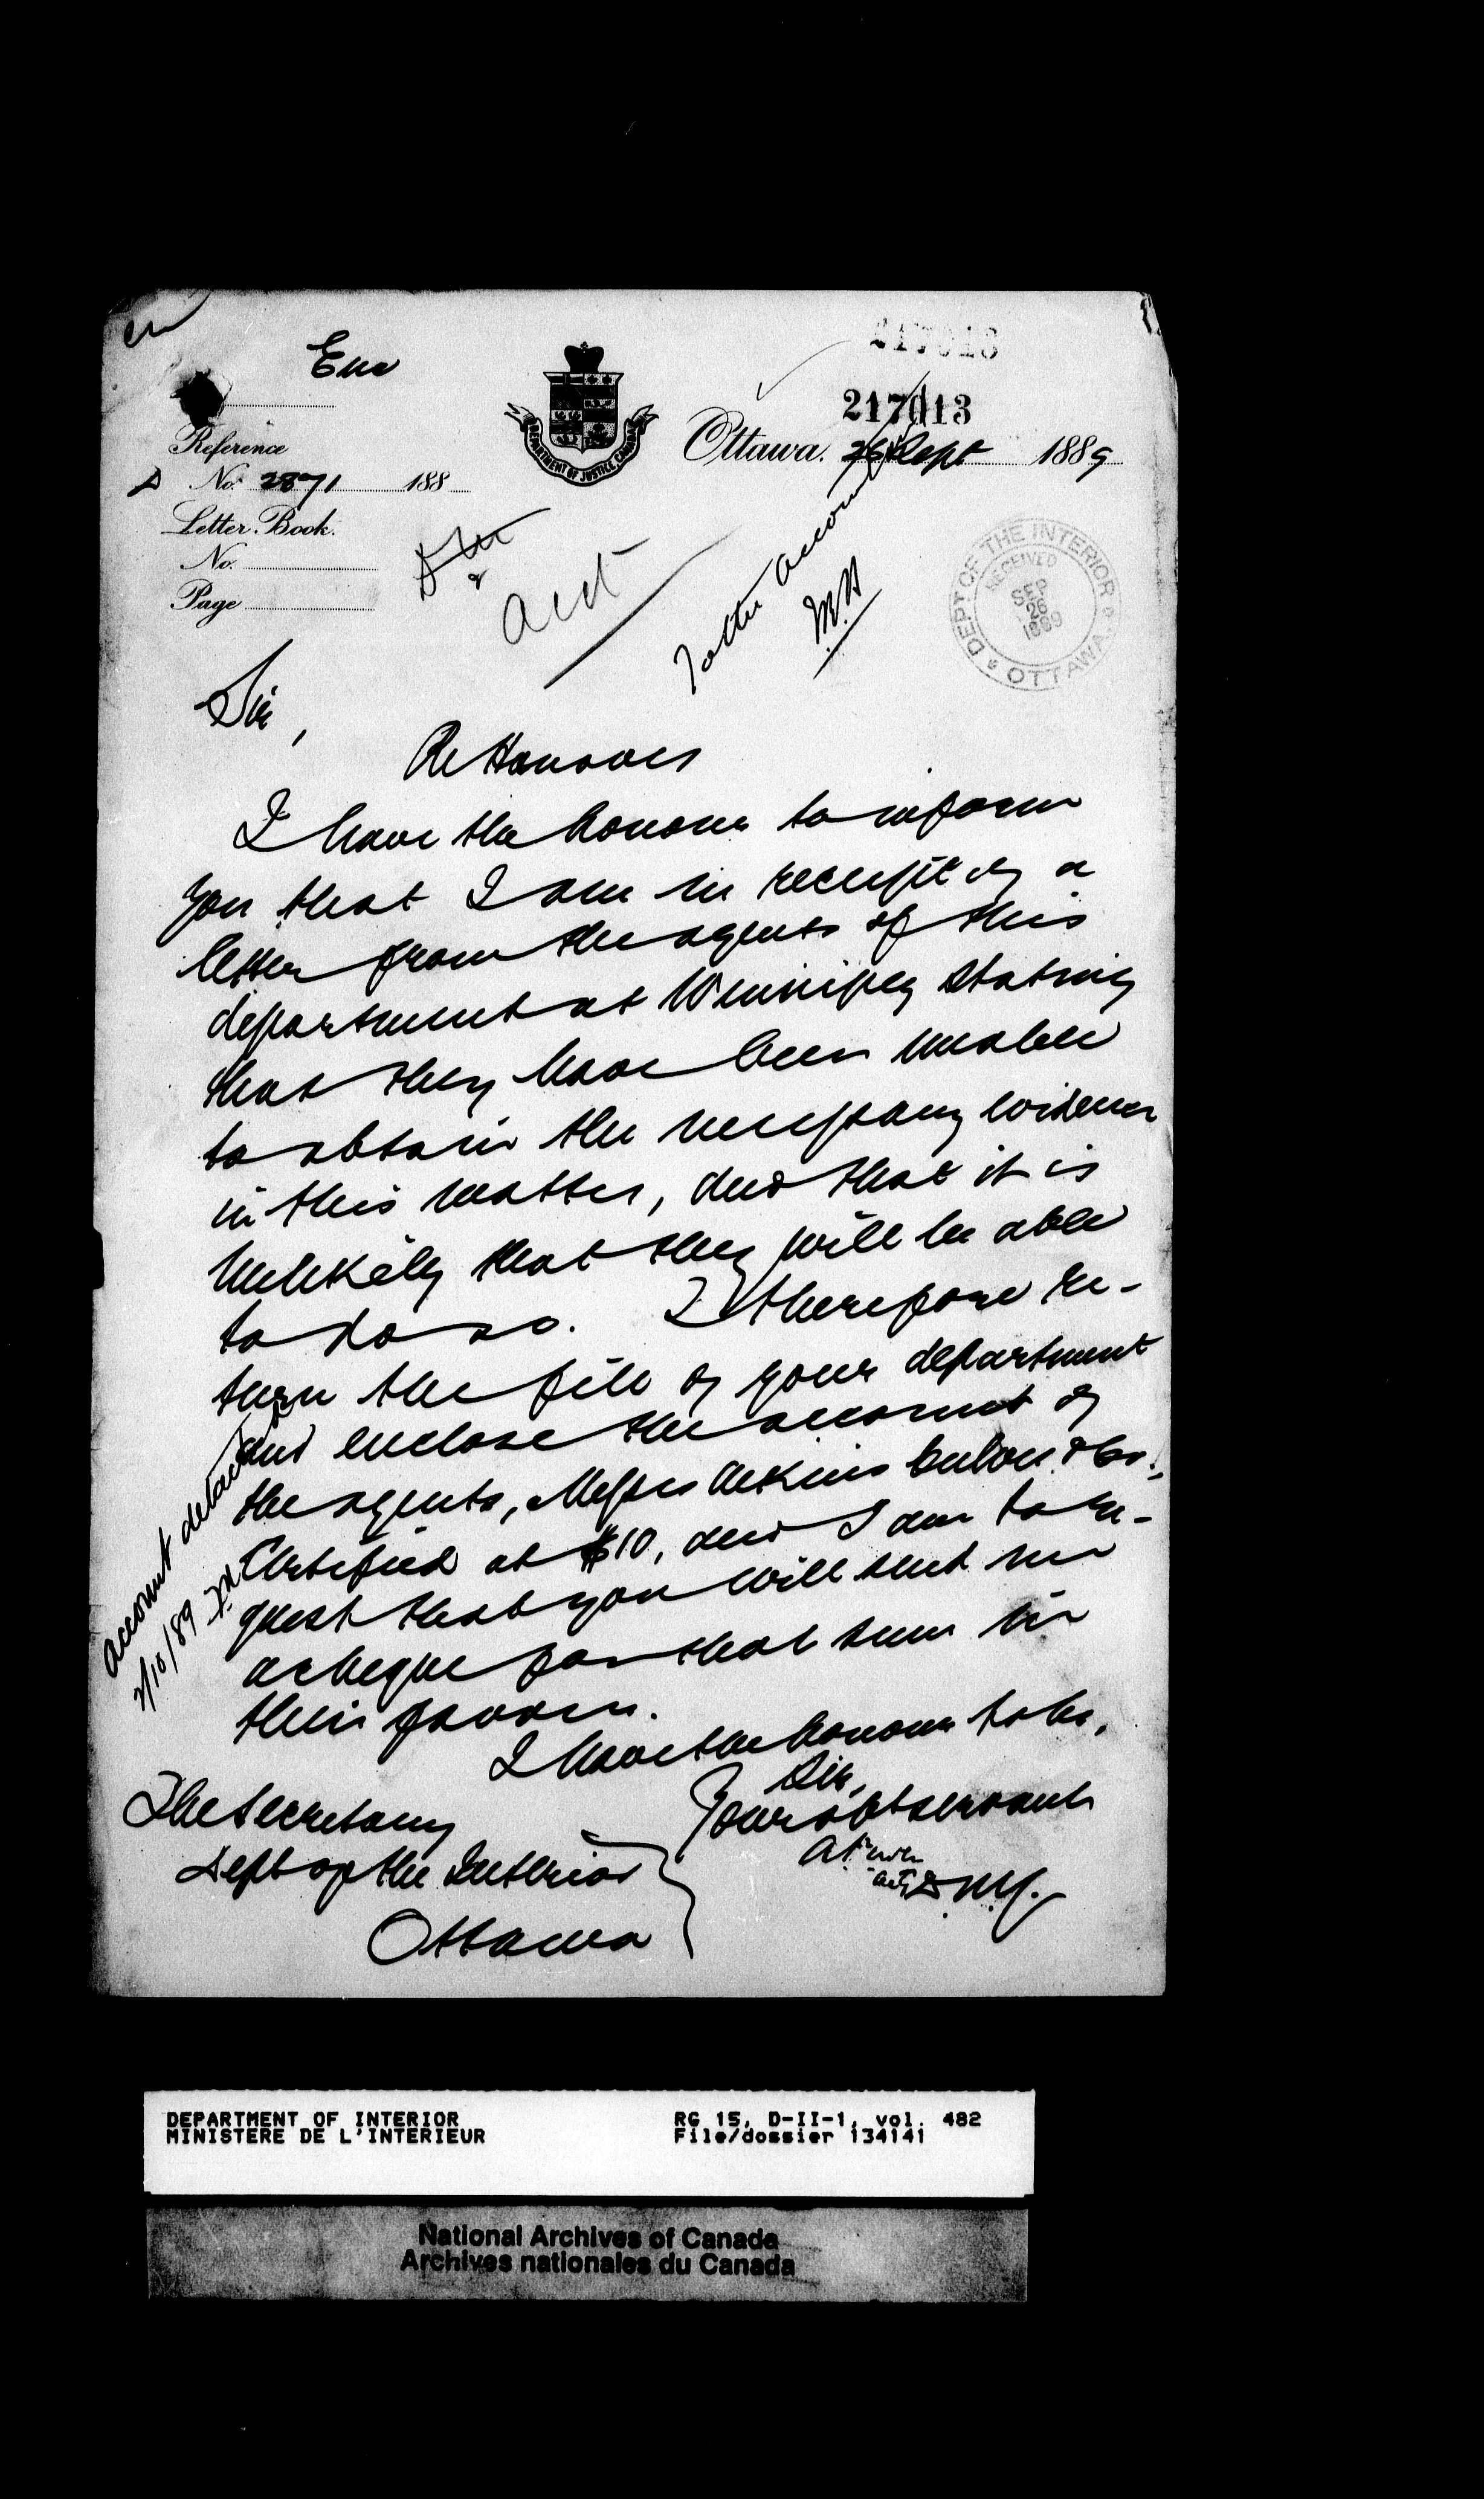 Enc
217013
217013
DEPARTMENT OF JUSTICE, CANADA
Ottawa. 26 Sept 1889
Reference
No. 2871 188
Letter Book.
No.
Page
DM
&
acct
account
DEPT OF THE INTERIOR
RECEIVED
SEP
26
1889
OTTAWA
Sir,
Re Hanover
I have the honour to inform
you that I am in receipt of a
letter from the agents of this
department at Winnipeg stating
that they have been unable
to obtain the necessary evidence
in this matter, and that it is
unlikely that they will be able
to do so. I therefore re-
turn the file of your department
and enclose the account of
the agents, Messrs Aikins Culver & Co.,
Certified at $10, and I am to re-
quest that you will send me
a cheque for that sum in
their favour.
I have the honour to be,
Sir,
Your obt servant
A. Power
actg D.M.J.
The Secretary
Dept of the Interior
Ottawa
Account detached
2/10/89
DEPARTMENT OF INTERIOR
MINISTERE DE L'INTERIEUR
RG 15, D-II-1, vol. 482
File/dossier 134141
National Archives of Canada
Archives nationales du Canada